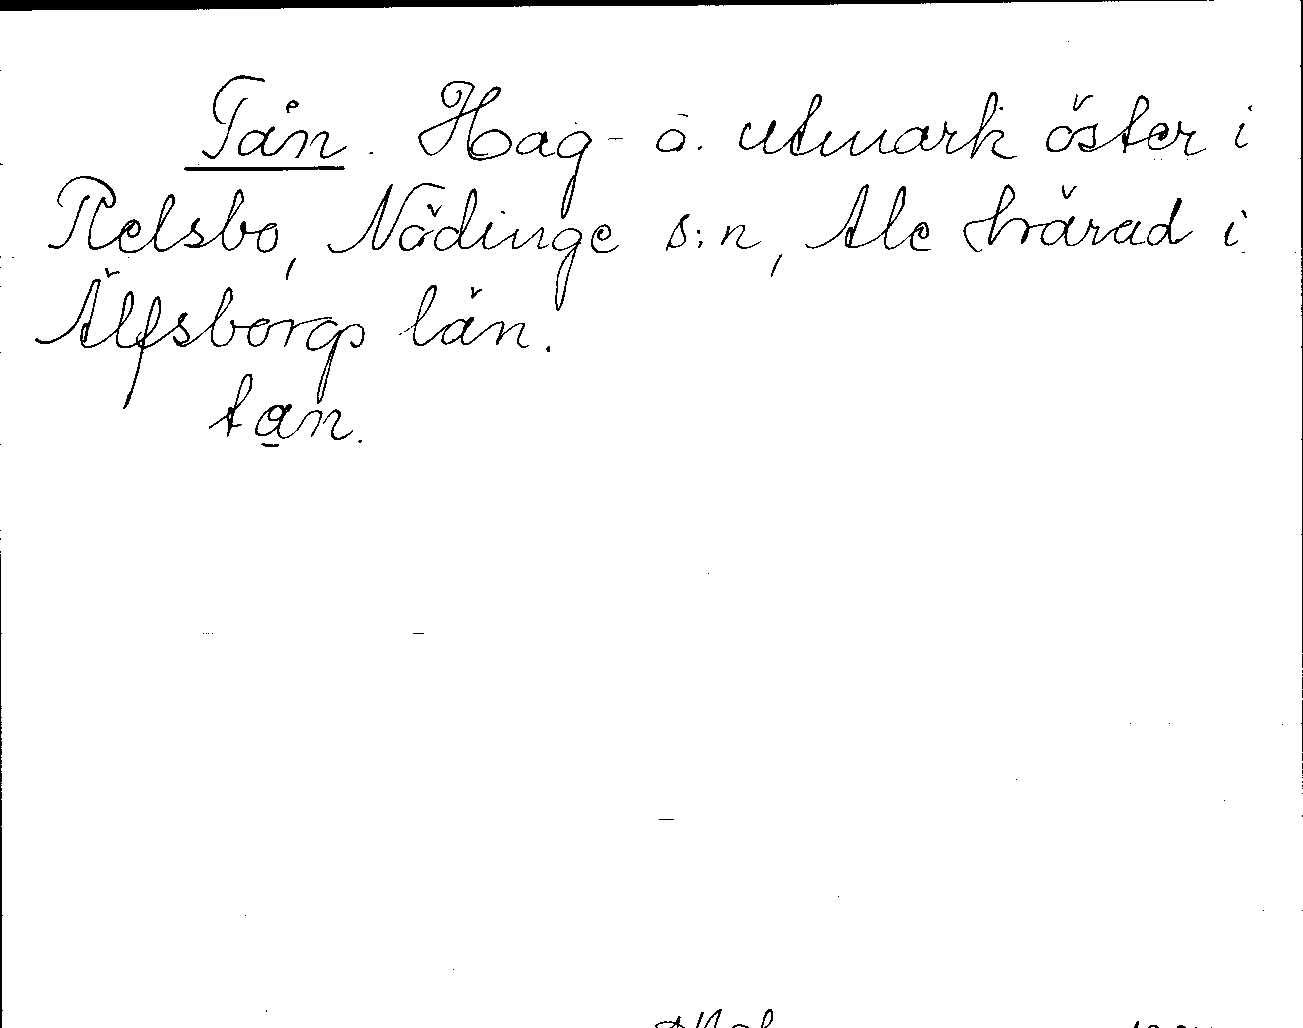 Tån. Hag- o. utmark öster i
Relsbo, Nödinge s:n, Ale härad i
Älfsborgs län.
tan.